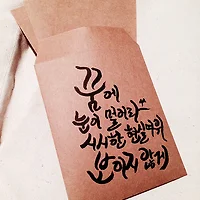 꿈에
눈이 멀어라^^
시시한 현실따위
보이지 않게